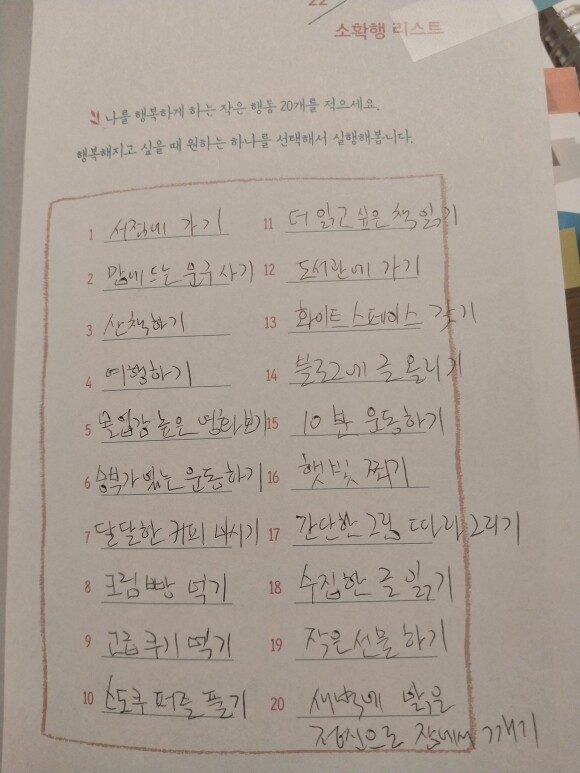 22
소확행 리스트
나를 행복하게 하는 작은 행동 20개를 적으세요.
행복해지고 싶을 때 원하는 하나를 선택해서 실행해봅니다.
1 서점에 가기
2 맘에 드는 문구 사기
3 산책하기
4 여행하기
5 몰입감 높은 영화보기
6 승부가 있는 운동하기
7 달달한 커피 마시기
8 크림빵 먹기
9 고급 쿠키 먹기
10 스도쿠 퍼즐 풀기
11 더 읽고 싶은 책 읽기
12 도서관에 가기
13 화이트 스페이스 갖기
14 블로그에 글 올리기
15 10분 운동하기
16 햇빛 쬐기
17 간단한 그림 따라 그리기
18 수집한 글 읽기
19 작은 선물 하기
20 새벽에 맑은
정신으로 잠에서 깨기